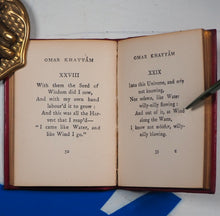 OMAR KHAYYÁM
XXVIII
With them the Seed of
Wisdom did I sow,
And with my own hand
labour'd it to grow:
And this was all the Har-
vest that I reap'd—
"I came like Water, and
like Wind I go."
50
OMAR KHAYYÁM
XXIX
Into this Universe, and why
not knowing,
Nor whence, like Water
willy-nilly flowing:
And out of it, as Wind
along the Waste,
I know not whither, willy-
nilly blowing.
51